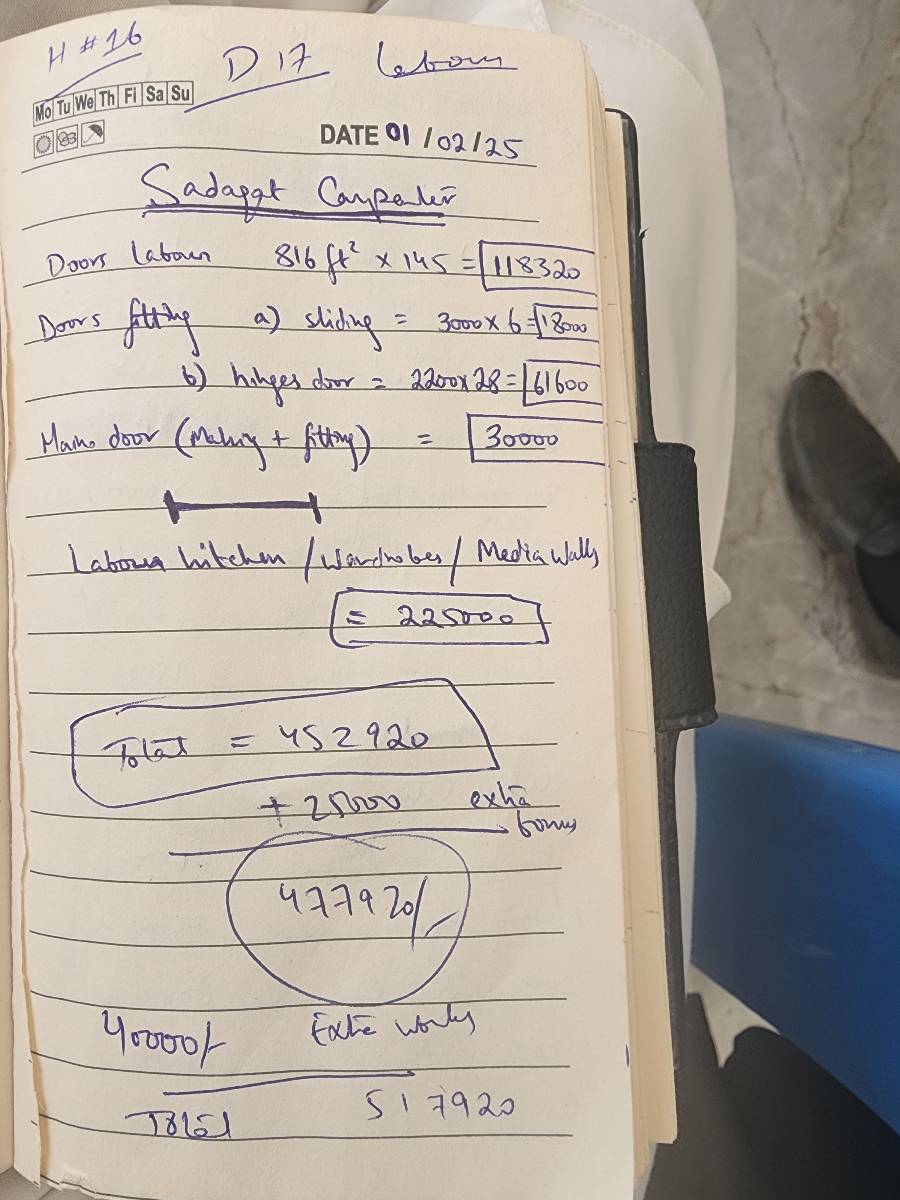 H # 16 D 17 Labour
Mo Tu We Th Fi Sa Su
DATE 01/02/25
Sadaqat Carpenter
Doors Labour 816 ft² × 145 = 118320
Doors fitting a) sliding = 3000 × 6 = 18000
b) hinges door = 2200 × 28 = 61600
Main door (Making + fitting) = 30000
Labour kitchen / Wardrobes / Media Walls
= 225000
Total = 452920
+ 25000 extra
bonus
477920/-
40000/- Extra works
Total 517920